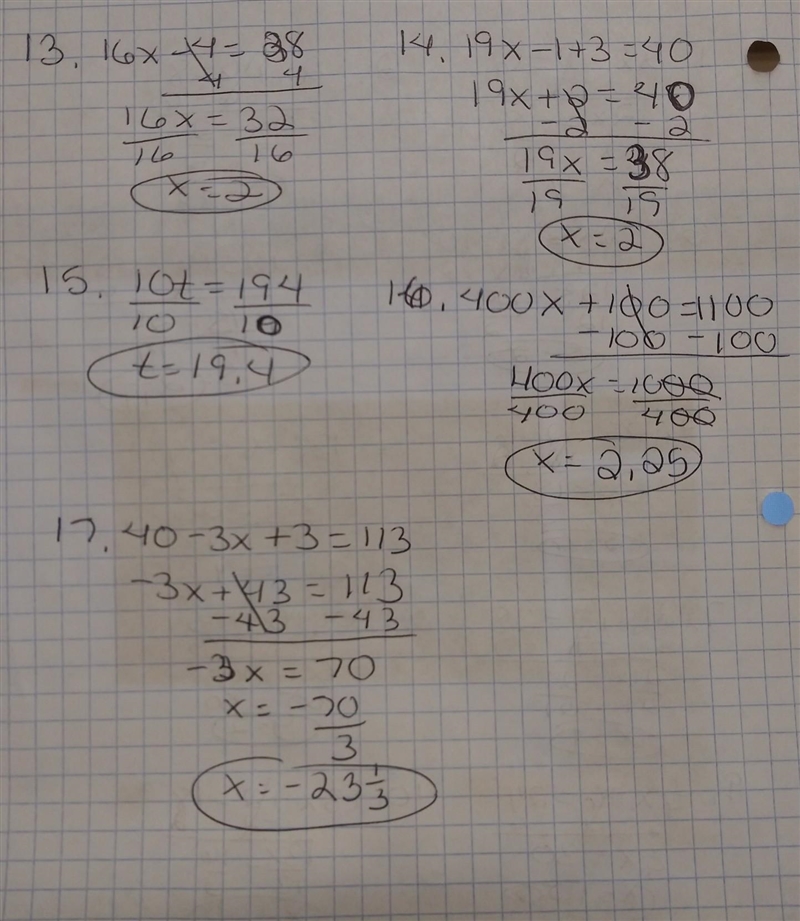 13. 16x - 4 = 38
4 4
16x = 32
16 16
x = 2
14. 19x - 1 + 3 = 40
19x + 2 = 40
- 2 - 2
19x = 38
19 19
x = 2
15. 10t = 194
10 10
t = 19.4
16. 400x + 100 = 1100
- 100 - 100
400x = 1000
400 400
x = 2,25
17. 40 - 3x + 3 = 113
-3x + 43 = 113
- 43 - 43
-3x = 70
x = -70
3
x = -23 1/3